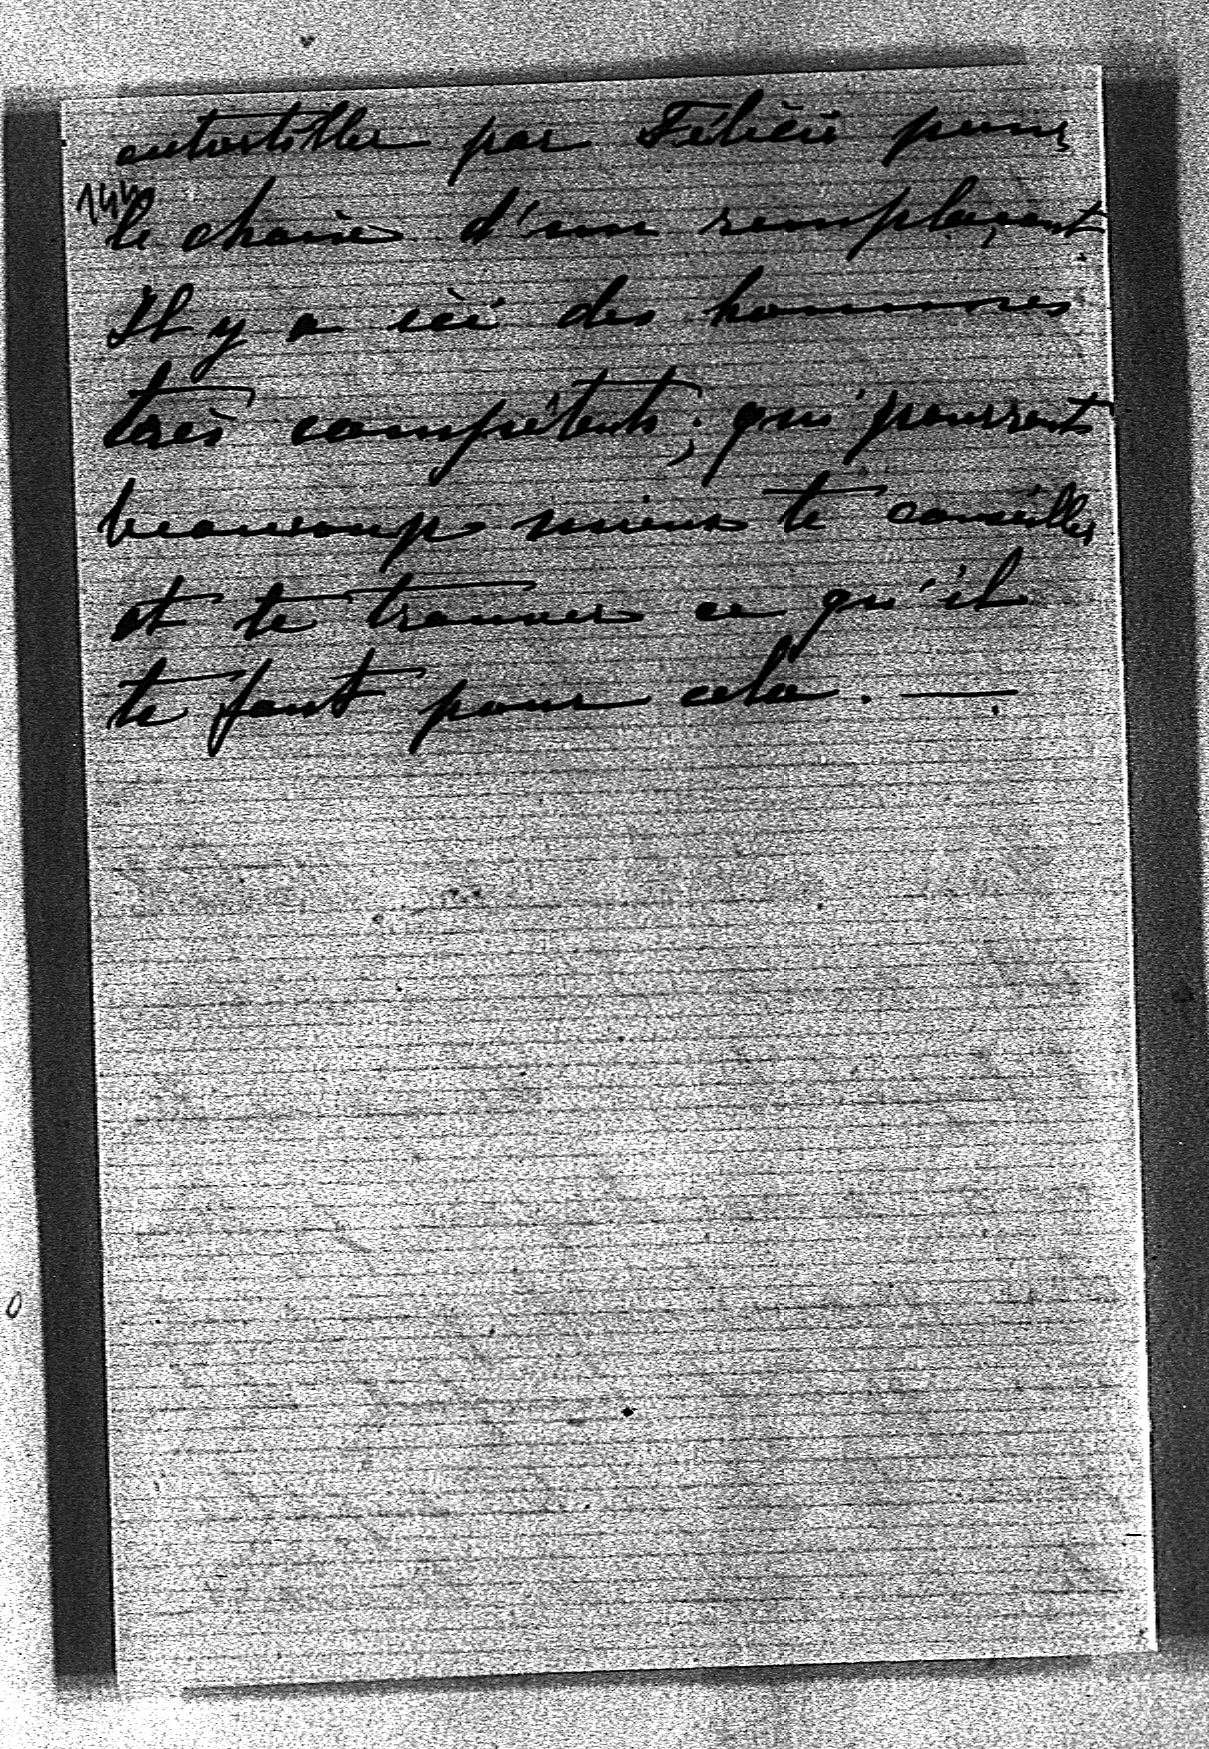 entortiller par Félicie pour
144
le choix d'un remplaçant.
Il y a ici des hommes
très compétents, qui pourront
beaucoup mieux te conseiller
et te trouver ce qu'il
te faut pour cela. —